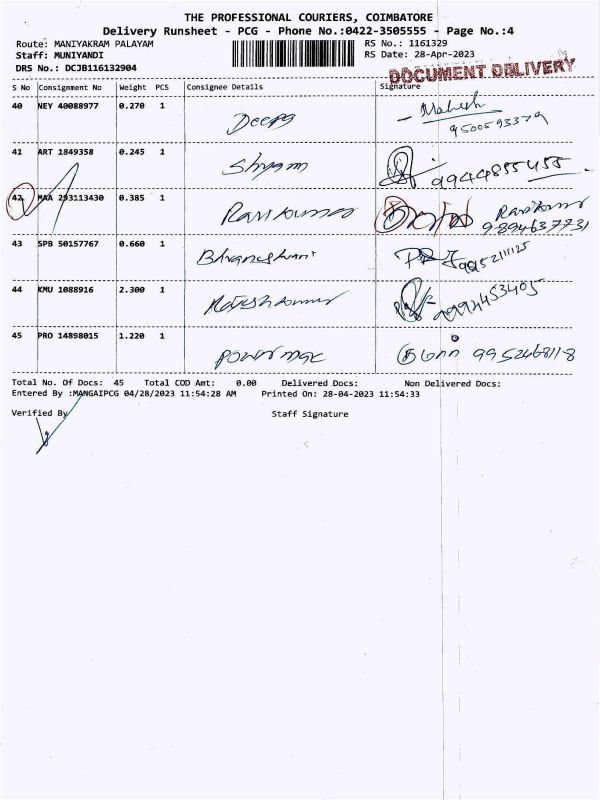 THE PROFESSIONAL COURIERS, COIMBATORE
Delivery Runsheet - PCG - Phone No.:0422-3505555 - Page No.:4
Route: MANIYAKRAM PALAYAM RS No.: 1161329
Staff: MUNIYANDI RS Date: 28-Apr-2023
DRS No.: DCJB116132904
DOCUMENT DELIVERY
S No Consignment No Weight PCS Consignee Details Signature
40 NEY 40088977 0.270 1 Deepa Mahesh
9500593379
41 ART 1849358 0.245 1 Shyam 9944855455
42 MAA 293113430 0.385 1 Ravikumar Ravikumar
9894637731
43 SPB 50157767 0.660 1 9952111125
44 KMU 1088916 2.300 1 9994453405
45 PRO 14898015 1.220 1 powermac 9952468118
Total No. Of Docs: 45 Total COD Amt: 0.00 Delivered Docs: Non Delivered Docs:
Entered By :MANGAIPCG 04/28/2023 11:54:28 AM Printed On: 28-04-2023 11:54:33
Verified By Staff Signature